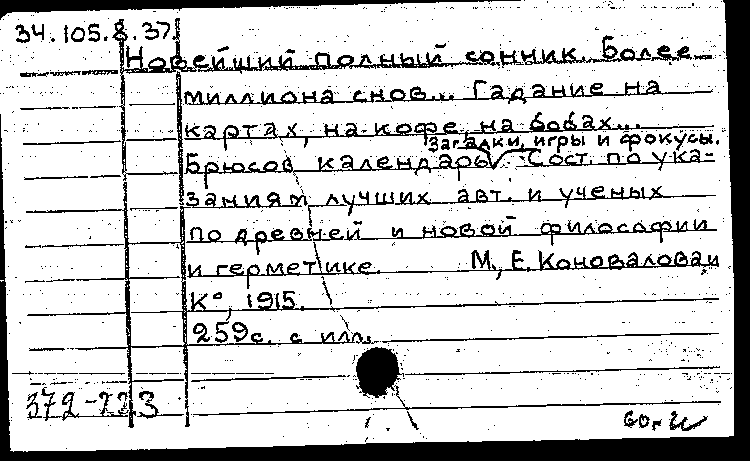 34.105.8.37.
Новейший полный сонник. Более
миллиона снов... Гадание на
картах, на кофе, на бобах...
Загадки, игры и фокусы.
Брюсов календарь. Сост. по ука-
заниям лучших авт. и ученых
по древней и новой философии
и герметике. М., Е. Коновалова и
К°, 1915.
259с. с илл.
372-223